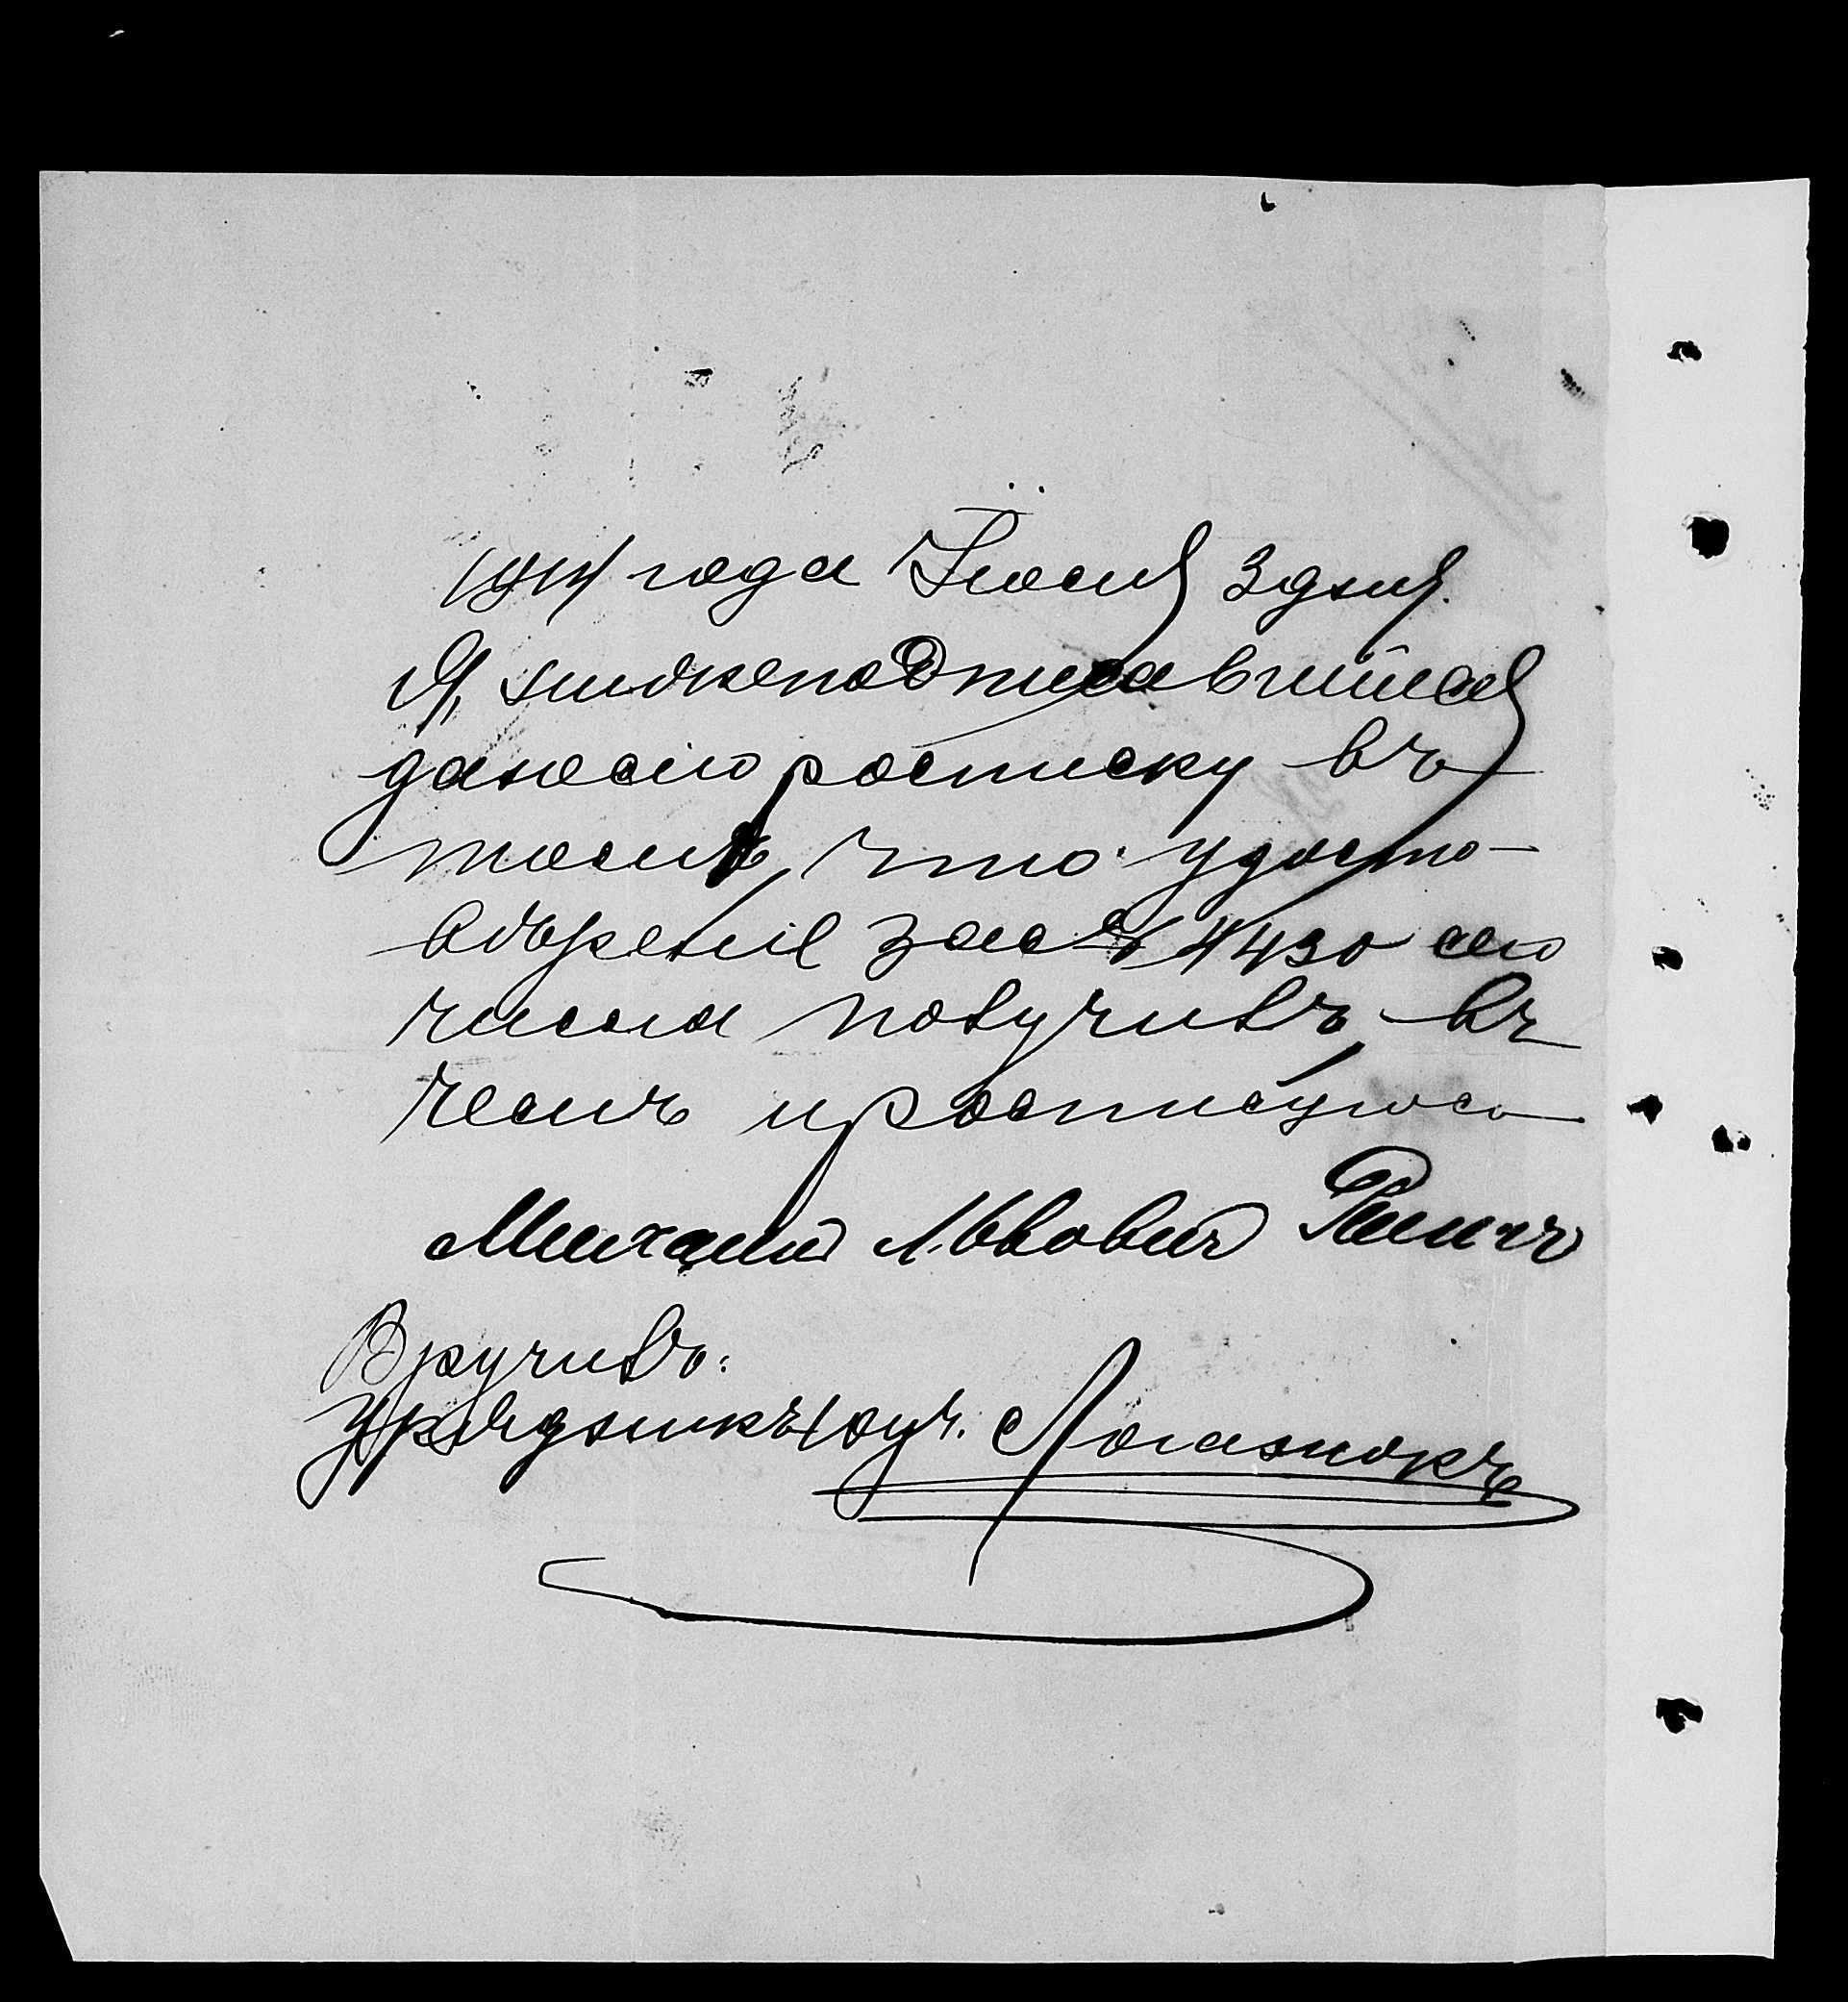 1914 года Іюня 3 дня.
Я, нижеподписавшійся
даю сію росписку въ
томъ, что удосто-
вѣреніе за № 4430 сего
числа получилъ, въ
чемъ и росписуюсь
Михаилъ Львовичъ
Вручилъ:
Урядникъ 1 уч.